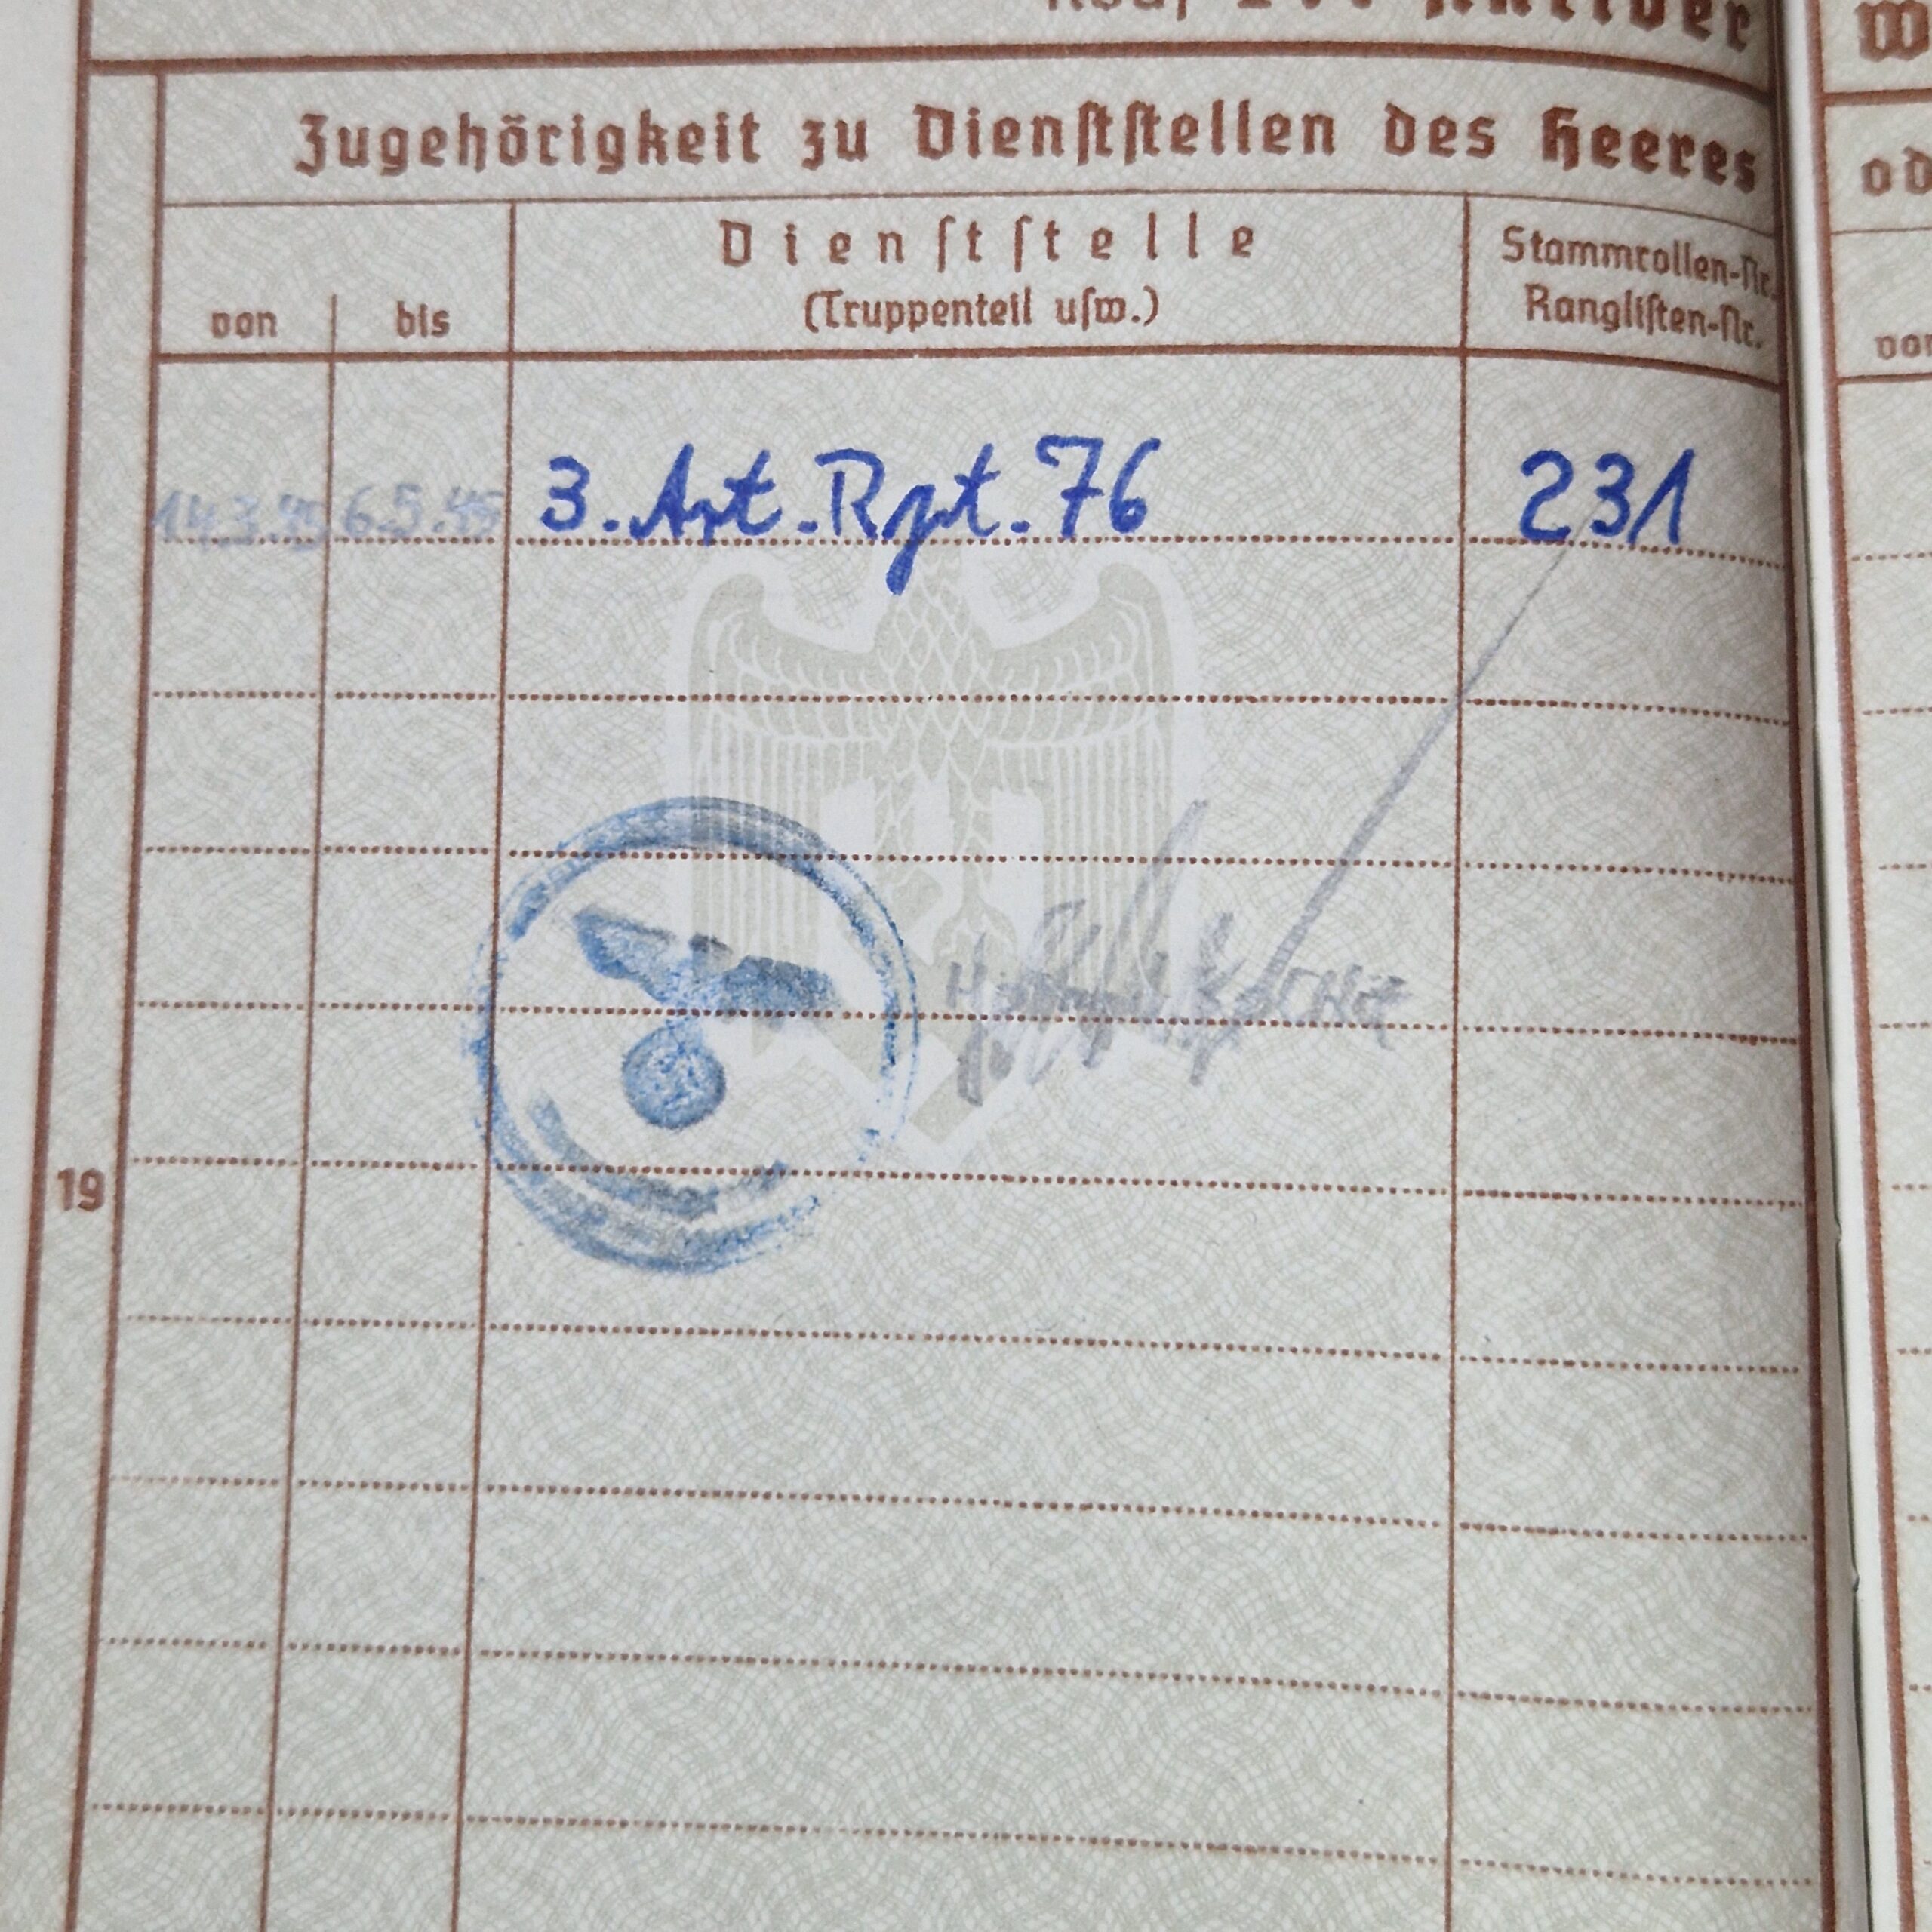 Zugehörigkeit zu Dienststellen des Heeres
von bis
Dienststelle
(Truppenteil usw.)
Stammrollen-Nr.
Ranglisten-Nr.
14.3.45 6.5.45 3. Art. Rgt. 76 231
19